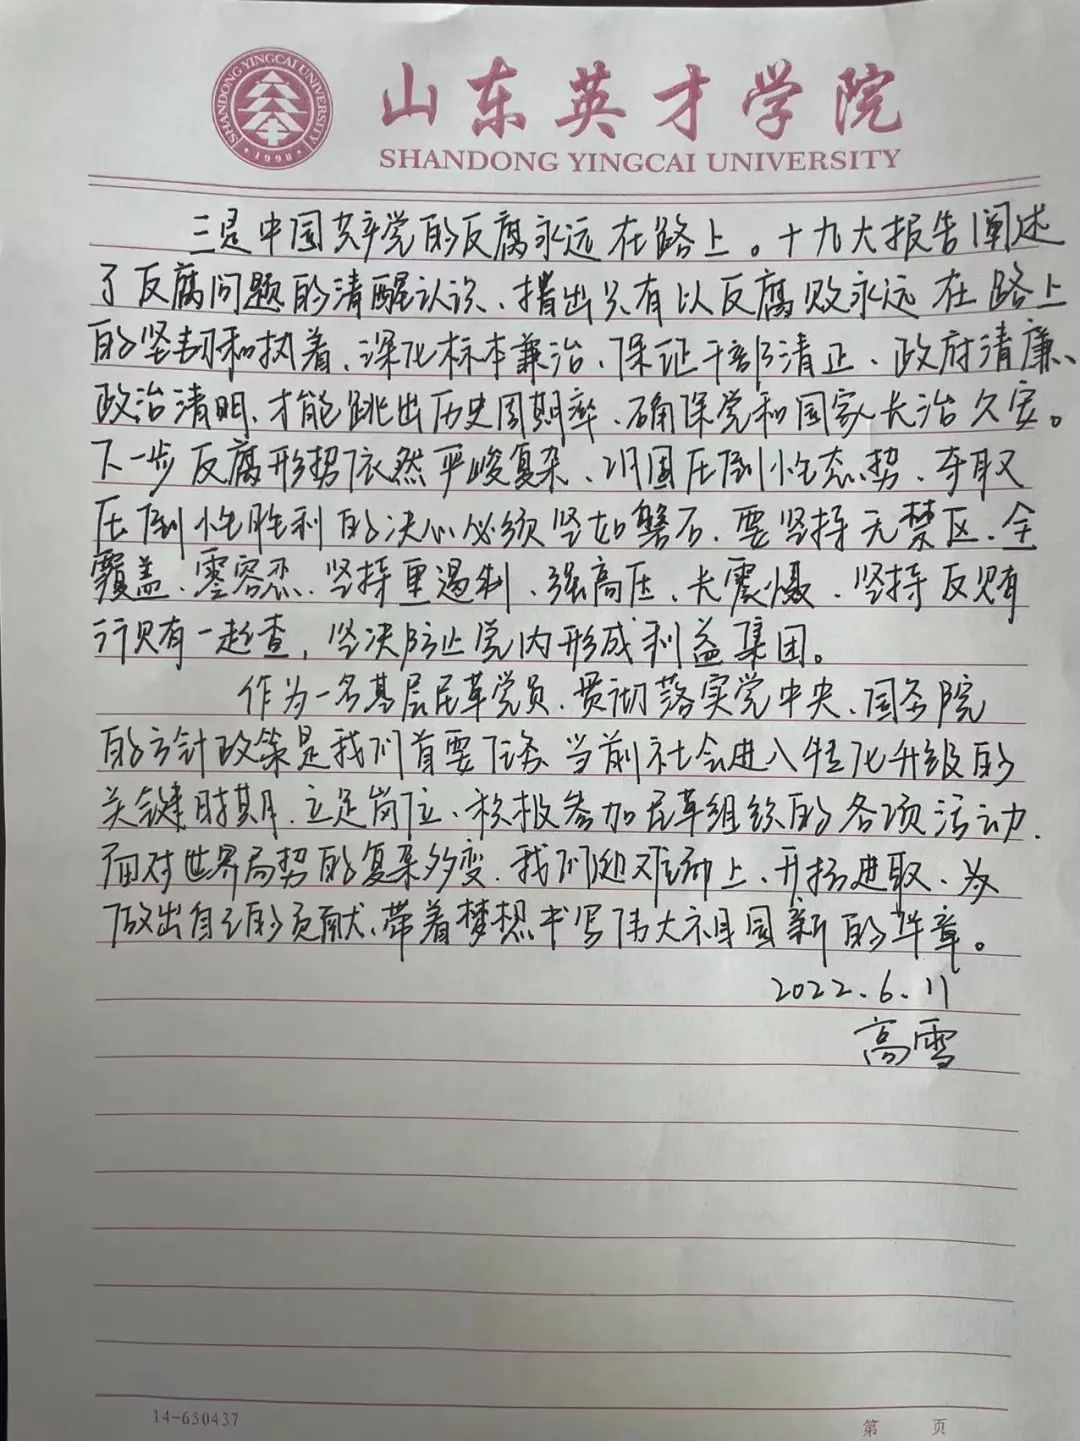 SHANDONG YINGCAI UNIVERSITY
·1998·
山东英才学院
SHANDONG YINGCAI UNIVERSITY
三是中国共产党的反腐永远在路上。十九大报告阐述
了反腐问题的清醒认识、指出只有以反腐败永远在路上
的坚韧和执着、深化标本兼治、保证干部清正、政府清廉、
政治清明、才能跳出历史周期率、确保党和国家长治久安。
下一步反腐形势依然严峻复杂、巩固压倒性态势、夺取
压倒性胜利的决心必须坚如磐石、要坚持无禁区、全
覆盖、零容忍、坚持重遏制、强高压、长震慑、坚持反贿
行贿有一起查，坚决防止党内形成利益集团。
作为一名基层民革党员、贯彻落实党中央、国务院
的方针政策是我们首要任务、当前社会进入转化升级的
关键时期、立足岗位、积极参加民革组织的各项活动、
面对世界局势的复杂多变、我们迎难而上、开拓进取、为
做出自己的贡献、带着梦想书写伟大祖国新的华章。
2022.6.11
高雪
14-650437
第 页